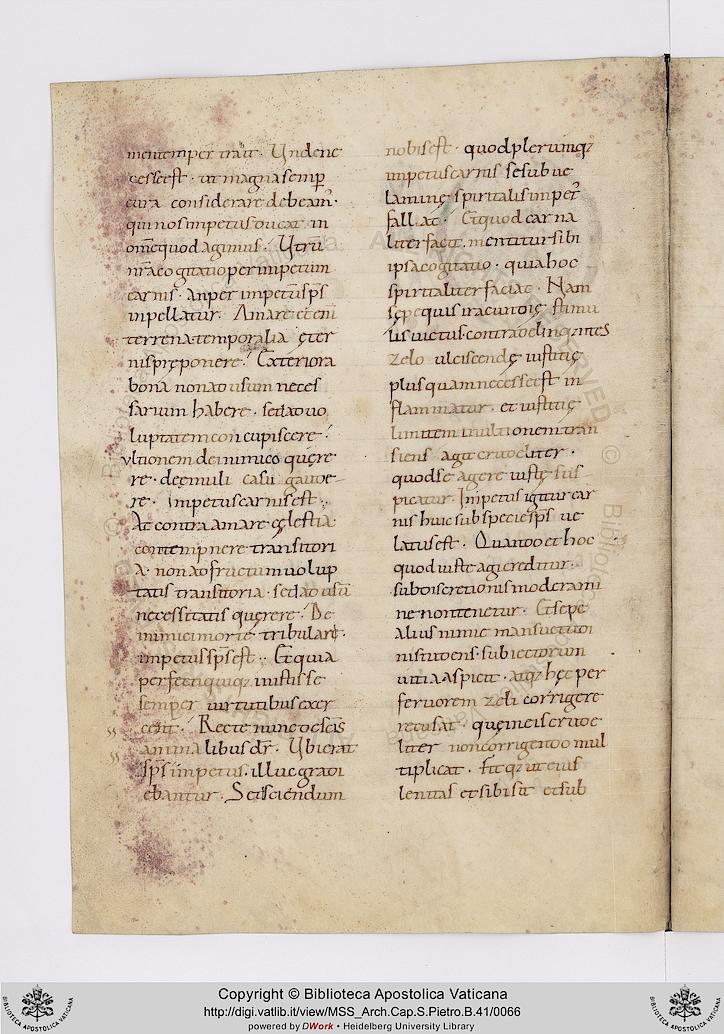 mentem pertrait. Unde ne
cesse est. ut magna semp
cura considerare debeam̄.
qui nos impetus ducat in
om̄e quod agimus. Utrū
nr̄a cogitatio per impetum
carnis. an per impetū sp̄s
inpellatur. Amare et eni
terrena temporalia ęter
nis pręponere. Exteriora
bona non ad usum neces
sarium habere. sed ad uo
luptatem concupiscere.
ultionem de inimico quęre
re. de ęmuli casu gaude
re. impetus carnis est.
At contra amare cęlestia.
contempnere transitori
a. non ad fructum uolup
tatis transitoria. sed ad usū
necessitatis quęrere. De
inimici morte tribulare.
impetus sp̄s est. Et quia
perfecti quiq; in istis se
semper uirtutibus exer
cent. Recte nunc de sc̄is
animalibus dr̄. Ubi erat
sp̄s impetus. illuc gradi
ebantur. Sed sciendum
nobis est. quod plerumq;
impetus carnis se sub ue
lamine spiritalis impet̄
fallat. Et quod carna
liter facit. mentitur sibi
ipsa cogitatio. quia hoc
spiritaliter faciat. Nam
sępe quis iracundię stimu
lis uictus contra delinquentes
zelo ulciscendę iustitię
plus quam necesse est in
flammatur. et iustitię
limitem in ultionem tran
siens agit crudeliter.
quod se agere iustę sus
picatur. Impetus igitur car
nis huic sub specie sp̄s ue
latus est. Quando et hoc
quod iuste agi creditur.
sub discretionis moderami
ne non tenetur. Et sepe
alius nimie mansuetudi
nis studens. subiectorum
uitia aspicit. atq; hęc per
feruorem zeli corrigere
recusat. quę in eis crude
liter non corrigendo mul
tiplicat. Fit q; ut eius
lenitas et sibi sit et sub
Copyright © Biblioteca Apostolica Vaticana
http://digi.vatlib.it/view/MSS_Arch.Cap.S.Pietro.B.41/0066
powered by DWork • Heidelberg University Library
BIBLIOTECA APOSTOLICA VATICANA
BIBLIOTECA APOSTOLICA VATICANA